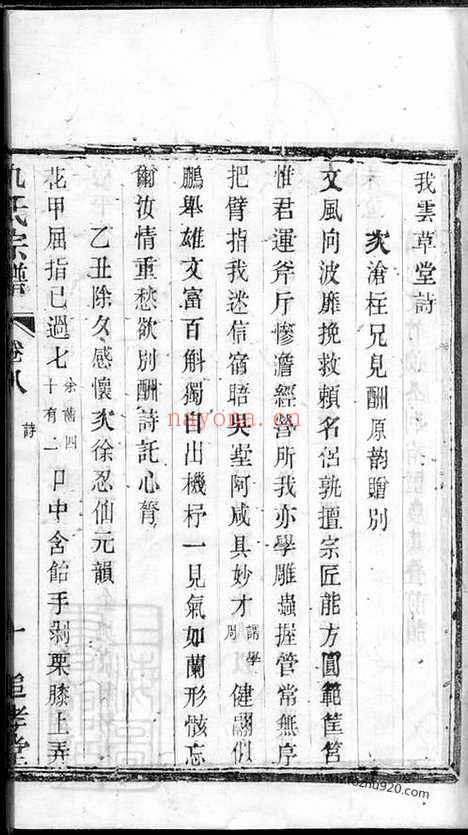 我雲草堂詩
次滄柱兄見酬原韵贈別
文風向波靡挽救賴名侶孰擅宗匠能方圓範筐筥
惟君運斧斤慘澹經營所我亦學雕蟲握管常無序
把臂指我迷信宿晤奚堂阿咸具妙才謂學周健翮們
鵬舉雄文富百斛獨自出機杼一見氣如蘭形骸忘
爾汝情重愁欲別酬詩託心膂
乙丑除夕感懷次徐忍仙元韻
花甲屈指已過七余齒四十有二口中含飴手剝栗膝上弄
仇氏宗譜
卷八
詩
十
追孝堂
nayona.cn
zhu920.com